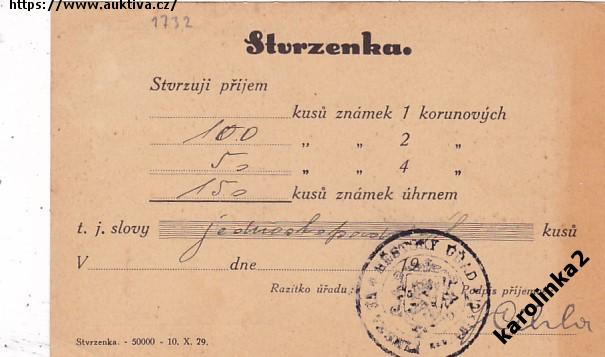 https://www.auktiva.cz/
1732
Stvrzenka.
Stvrzuji příjem
kusů známek 1 korunových
100 „ „ 2 „
50 „ „ 4 „
150 kusů známek úhrnem
t. j. slovy kusů
V dne 19
Razítko úřadu: Podpis příjem
MĚSTSKÝ ÚŘAD
karolinka2
Stvrzenka. - 50000 - 10. X. 29.